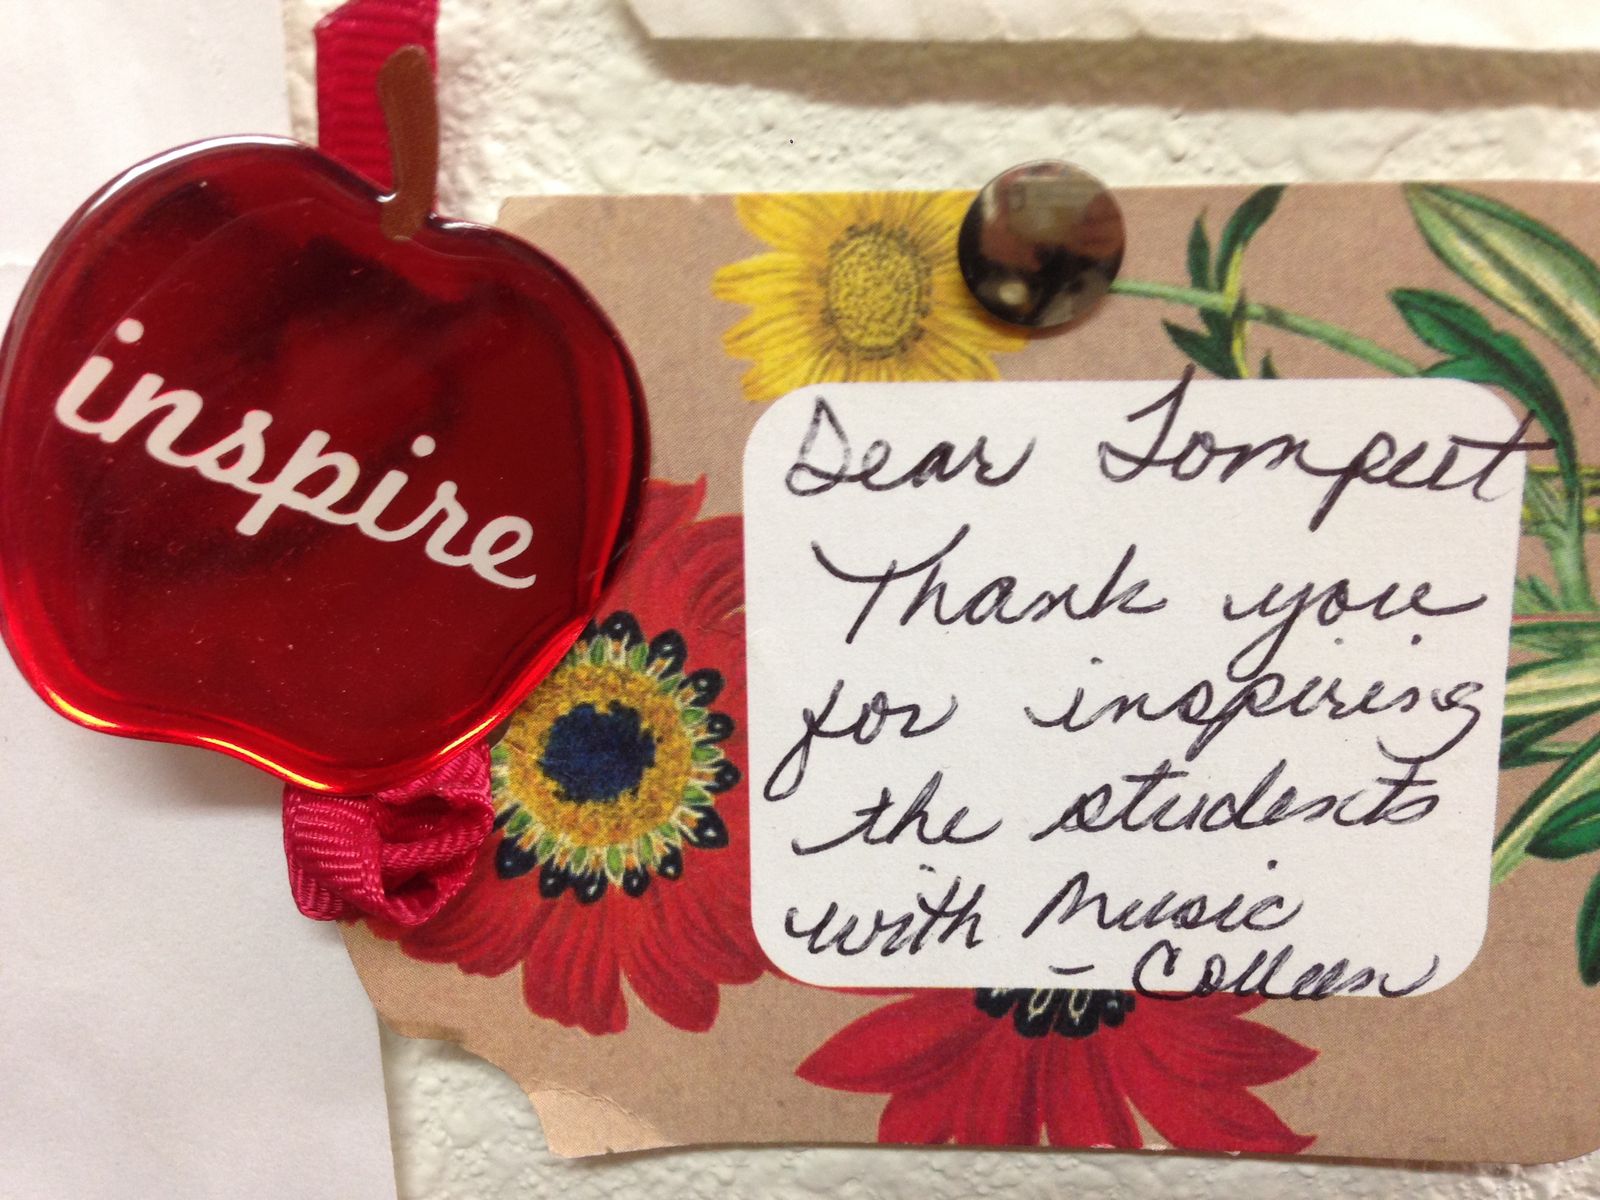 inspire
Dear Tompest
Thank you
for inspiring
the students
with Music
- Colleen